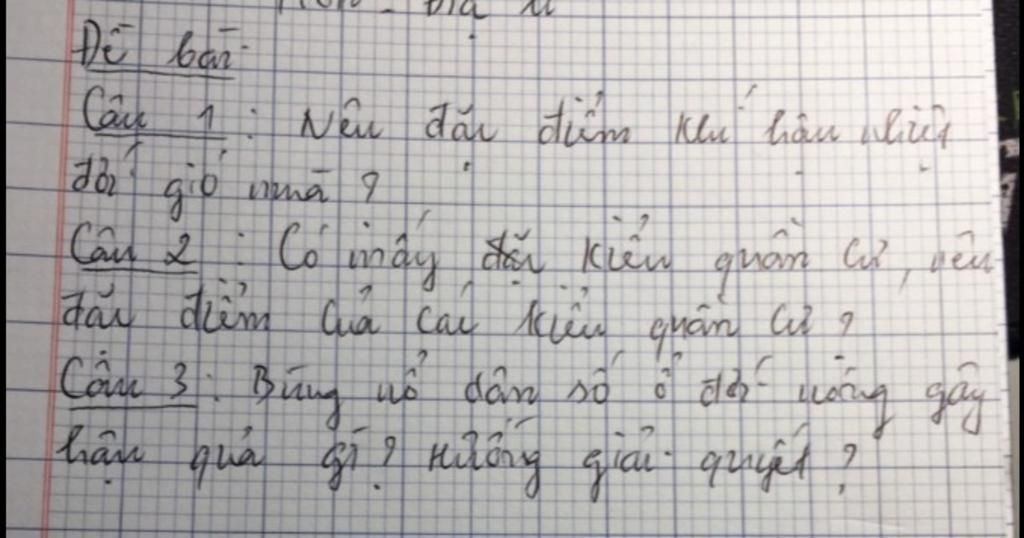 Đề bài
Câu 1 : Nêu đặc điểm khí hậu nhiệt
đới gió mùa ?
Câu 2 : Có mấy kiểu quần cư, nêu
đặc điểm của các kiểu quần cư ?
Câu 3 : Bùng nổ dân số ở đới nóng gây
hậu quả gì ? Hướng giải quyết ?